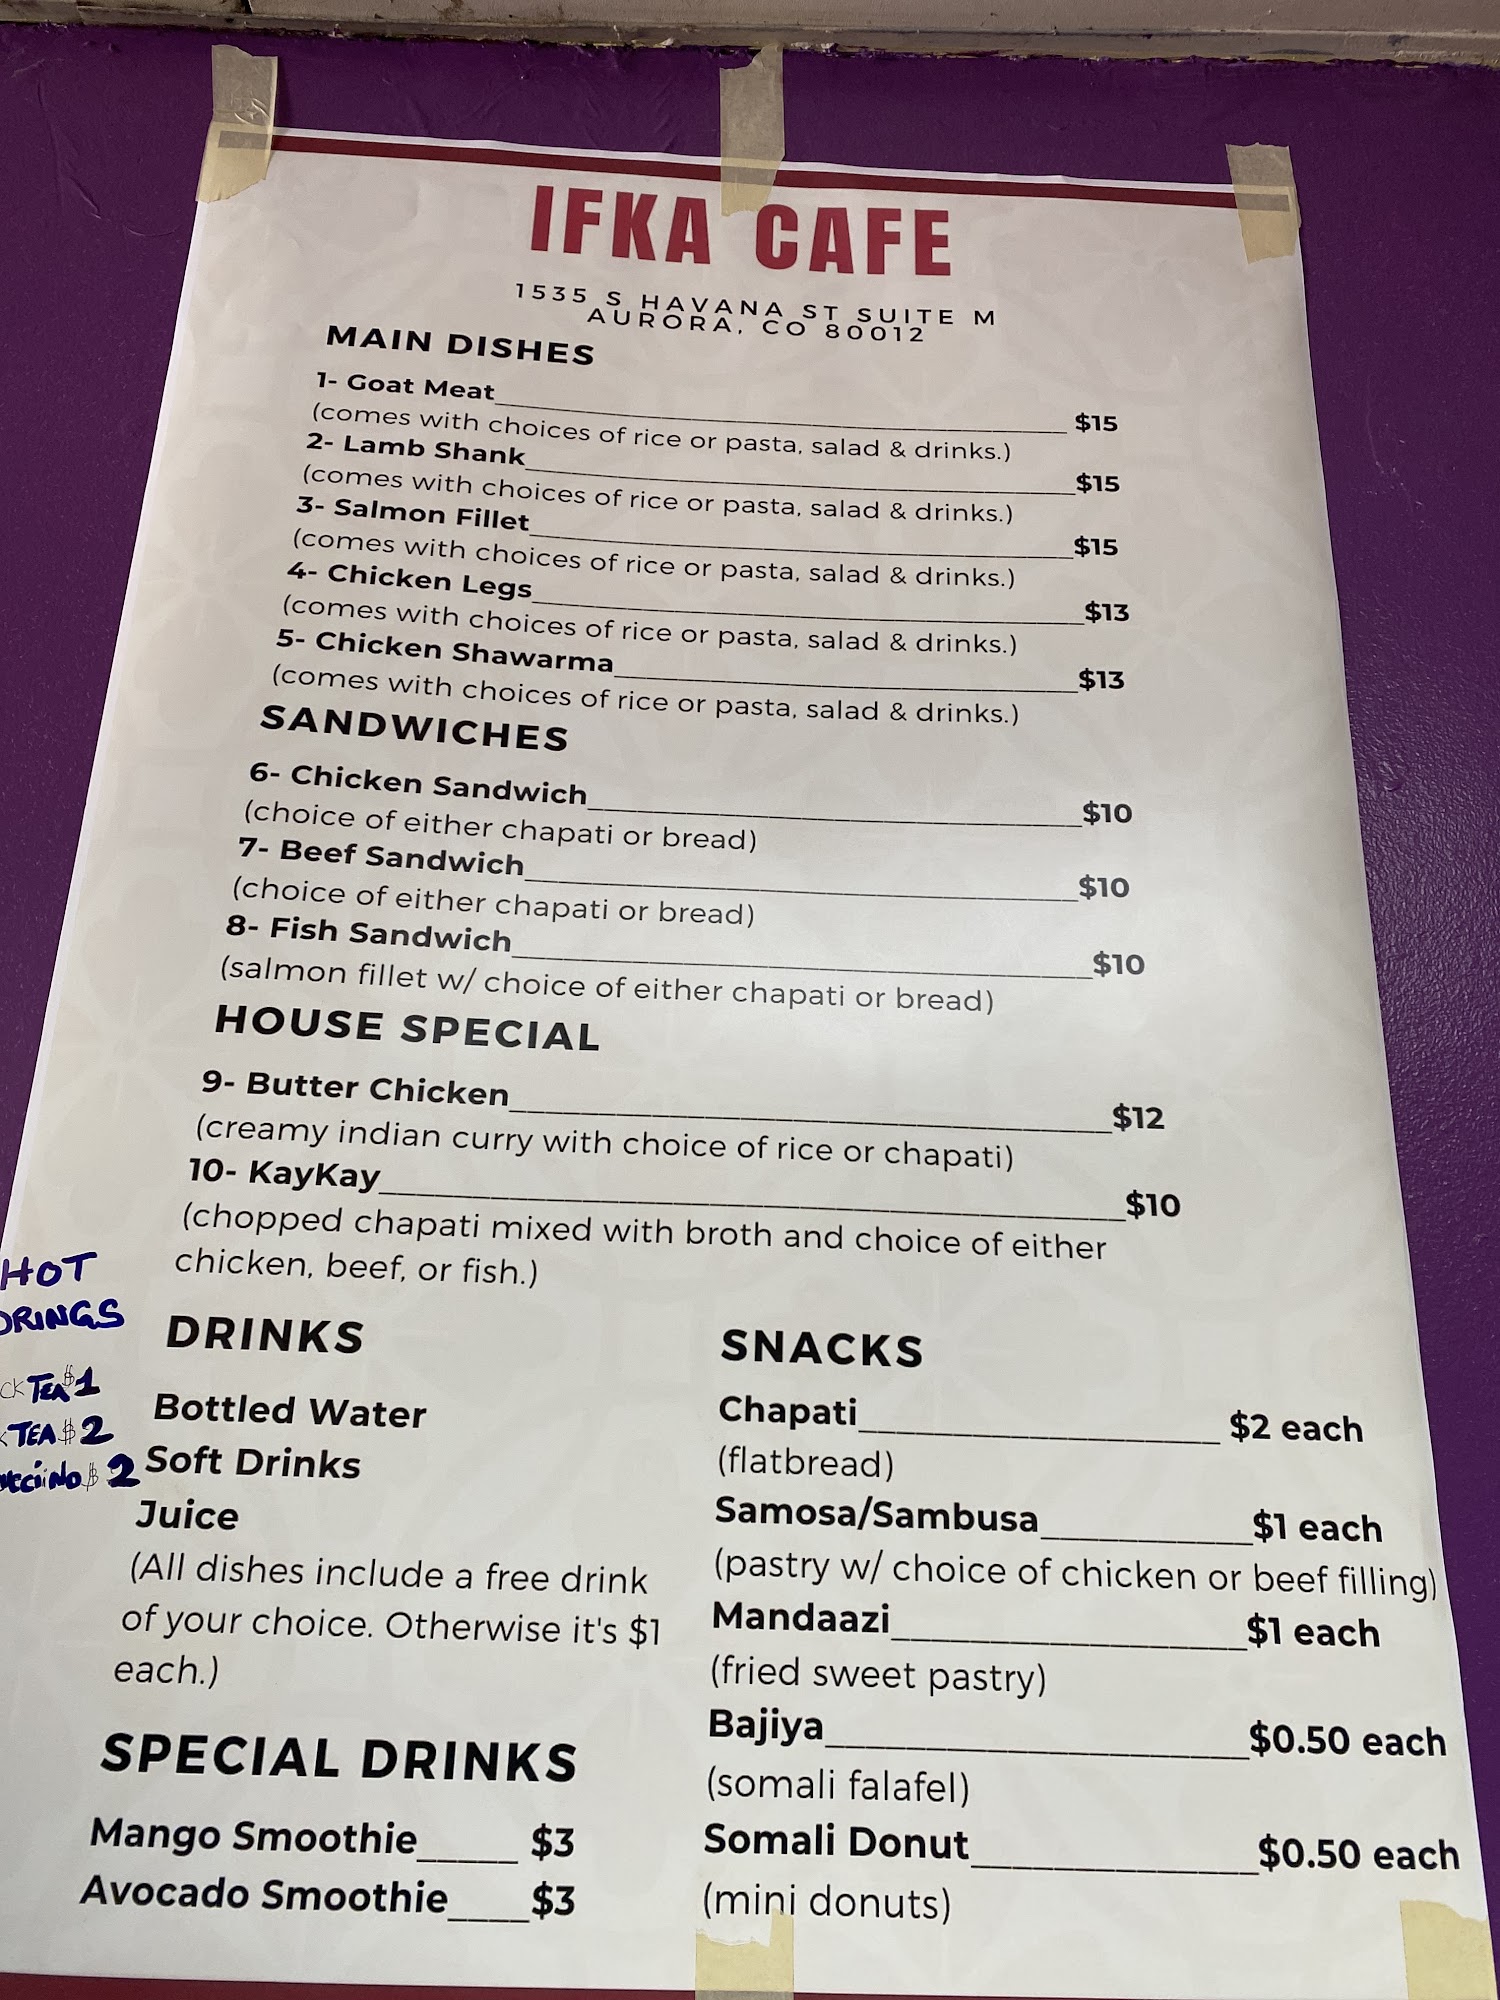 IFKA CAFE
1535 S HAVANA ST SUITE M
AURORA, CO 80012
MAIN DISHES
1- Goat Meat $15
(comes with choices of rice or pasta, salad & drinks.)
2- Lamb Shank $15
(comes with choices of rice or pasta, salad & drinks.)
3- Salmon Fillet $15
(comes with choices of rice or pasta, salad & drinks.)
4- Chicken Legs $13
(comes with choices of rice or pasta, salad & drinks.)
5- Chicken Shawarma $13
(comes with choices of rice or pasta, salad & drinks.)
SANDWICHES
6- Chicken Sandwich $10
(choice of either chapati or bread)
7- Beef Sandwich $10
(choice of either chapati or bread)
8- Fish Sandwich $10
(salmon fillet w/ choice of either chapati or bread)
HOUSE SPECIAL
9- Butter Chicken $12
(creamy indian curry with choice of rice or chapati)
10- KayKay $10
(chopped chapati mixed with broth and choice of either
chicken, beef, or fish.)
HOT
DRINGS
TEA $1
TEA $2
$2
DRINKS
Bottled Water
Soft Drinks
Juice
(All dishes include a free drink
of your choice. Otherwise it's $1
each.)
SPECIAL DRINKS
Mango Smoothie $3
Avocado Smoothie $3
SNACKS
Chapati $2 each
(flatbread)
Samosa/Sambusa $1 each
(pastry w/ choice of chicken or beef filling)
Mandaazi $1 each
(fried sweet pastry)
Bajiya $0.50 each
(somali falafel)
Somali Donut $0.50 each
(mini donuts)